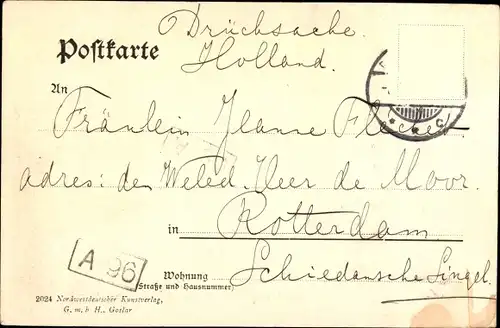 Drücksache.
Postkarte
Holland.
An
Fräulein Jeanne
adres: den Weled. Heer de Moor.
in
Rotterdam
A 96
Wohnung
Schiedansche Singel.
(Straße und Hausnummer)
2024 Nordwestdeutscher Kunstverlag,
G. m. b H., Goslar